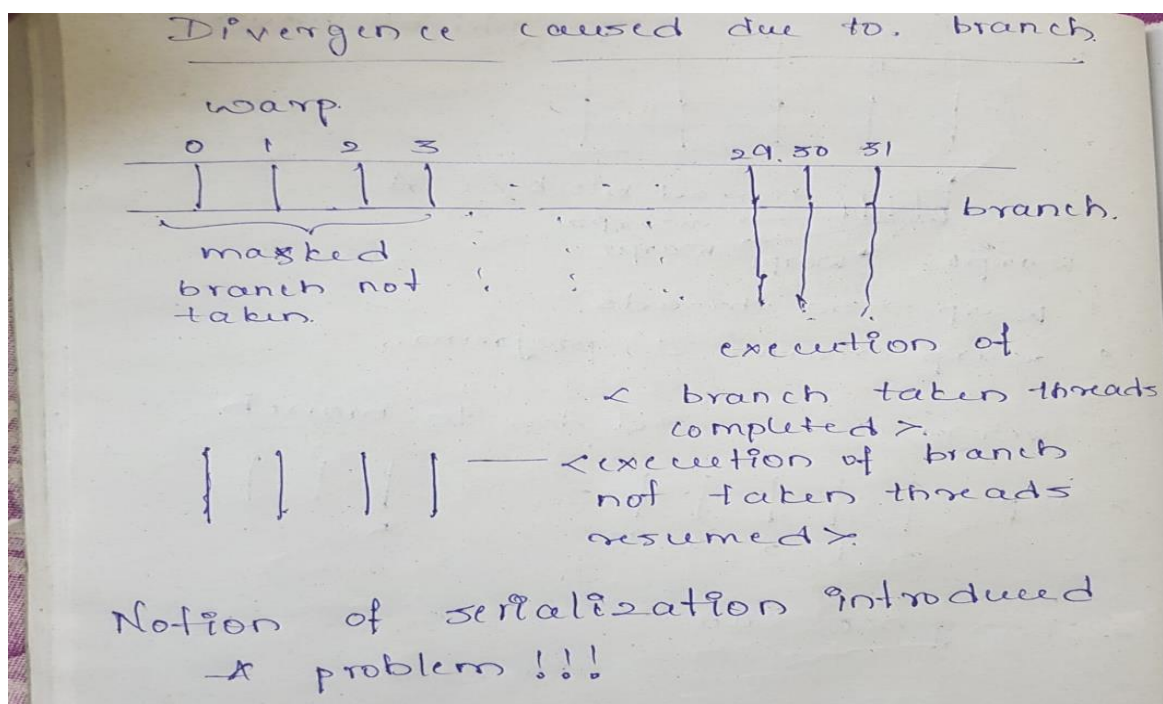 Divergence caused due to. branch.
warp.
0 1 2 3 29. 30 31
branch.
masked
branch not
taken.
execution of
< branch taken threads
completed >.
<execution of branch
not taken threads
resumed>.
Notion of serialization introduced
A problem !!!